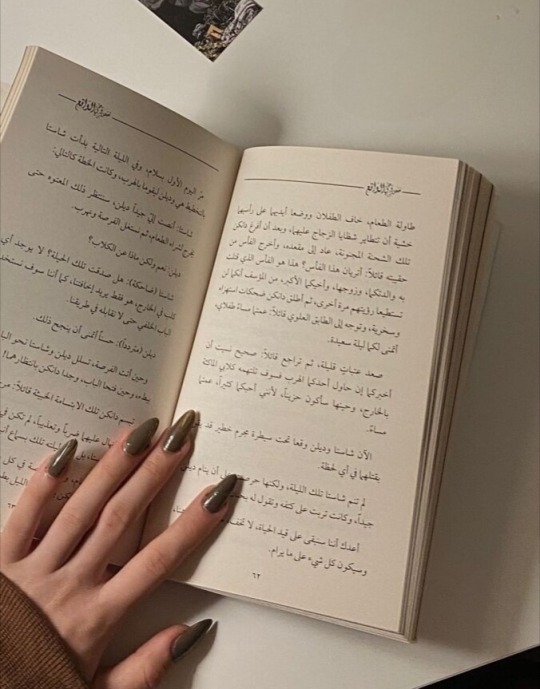 الواقع
طاولة الطعام، خاف الطفلان ووضعا أيديهما على رأسيهما
خشية أن تتطاير شظايا الزجاج عليهما، وبعد أن أفرغ دانكن
تلك الشحنة المجنونة، عاد إلى مقعده، وأخرج الفأس من
حقيبته قائلاً: أتريان هذا الفأس؟ هذا هو الفأس الذي قتلت
به والدتكما، وزوجها، وأخيكما الأكبر، من المؤسف أنكما لن
تستطيعا رؤيتهم مرة أخرى، ثم أطلق دانكن ضحكات استهزاء
وسخرية، وتوجه إلى الطابق العلوي قائلاً: عمتما مساءً طفلاي،
أتمنى لكما ليلة سعيدة.
صعد عتباتٍ قليلة، ثم تراجع قائلاً: صحيح نسيت أن
أخبركم إن حاول أحدكما الهرب فسوف تلتهمه كلابي الماكثة
بالخارج، وحينها سأكون حزيناً، لأنني أحبكما كثيراً، عمتما
مساءً.
الآن شاستا وديلن وقعا تحت سيطرة مجرم خطير قد يقوم
بقتلهما في أي لحظة.
لم تنم شاستا تلك الليلة، ولكنها أن ينام ديلن
جيداً، وكانت تربت على كتفه وتقول له
أعدك أننا سنبقى على قيد الحياة، لا تخف
وسيكون كل شيء على ما يرام.
٦٢
الواقع
مرّ اليوم الأول بسلام، وفي الليلة التالية بدأت شاستا
بالتخطيط هي وديلن كيفما بالهرب، وكانت الخطة كالتالي:
شاستا: أنصت إليّ جيداً ديلن، سننتظر ذلك المعتوه حتى
يخرج لشراء الطعام، ثم نستغل الفرصة ونهرب.
ديلن نعم ولكن ماذا عن الكلاب؟
شاستا (ضاحكة): هل صدقت تلك الحيلة؟ لا يوجد أي
كلب في الخارج، هو فقط يريد إخافتنا، كما أننا سوف نستخدم
الباب الخلفي حتى لا نقابله في طريقنا.
ديلن (متردداً): حسناً أتمنى أن ينجح ذلك.
وحين أتت الفرصة، تسلل ديلن وشاستا نحو الباب
وحين فتحا الباب، وجدا دانكن بانتظارهما!
دانكن تلك الابتسامة الخبيثة قائلاً:
عليهما ضرباً وتعذيباً، لم تكن
تلك بسماع
في كل
الليل
٦٣